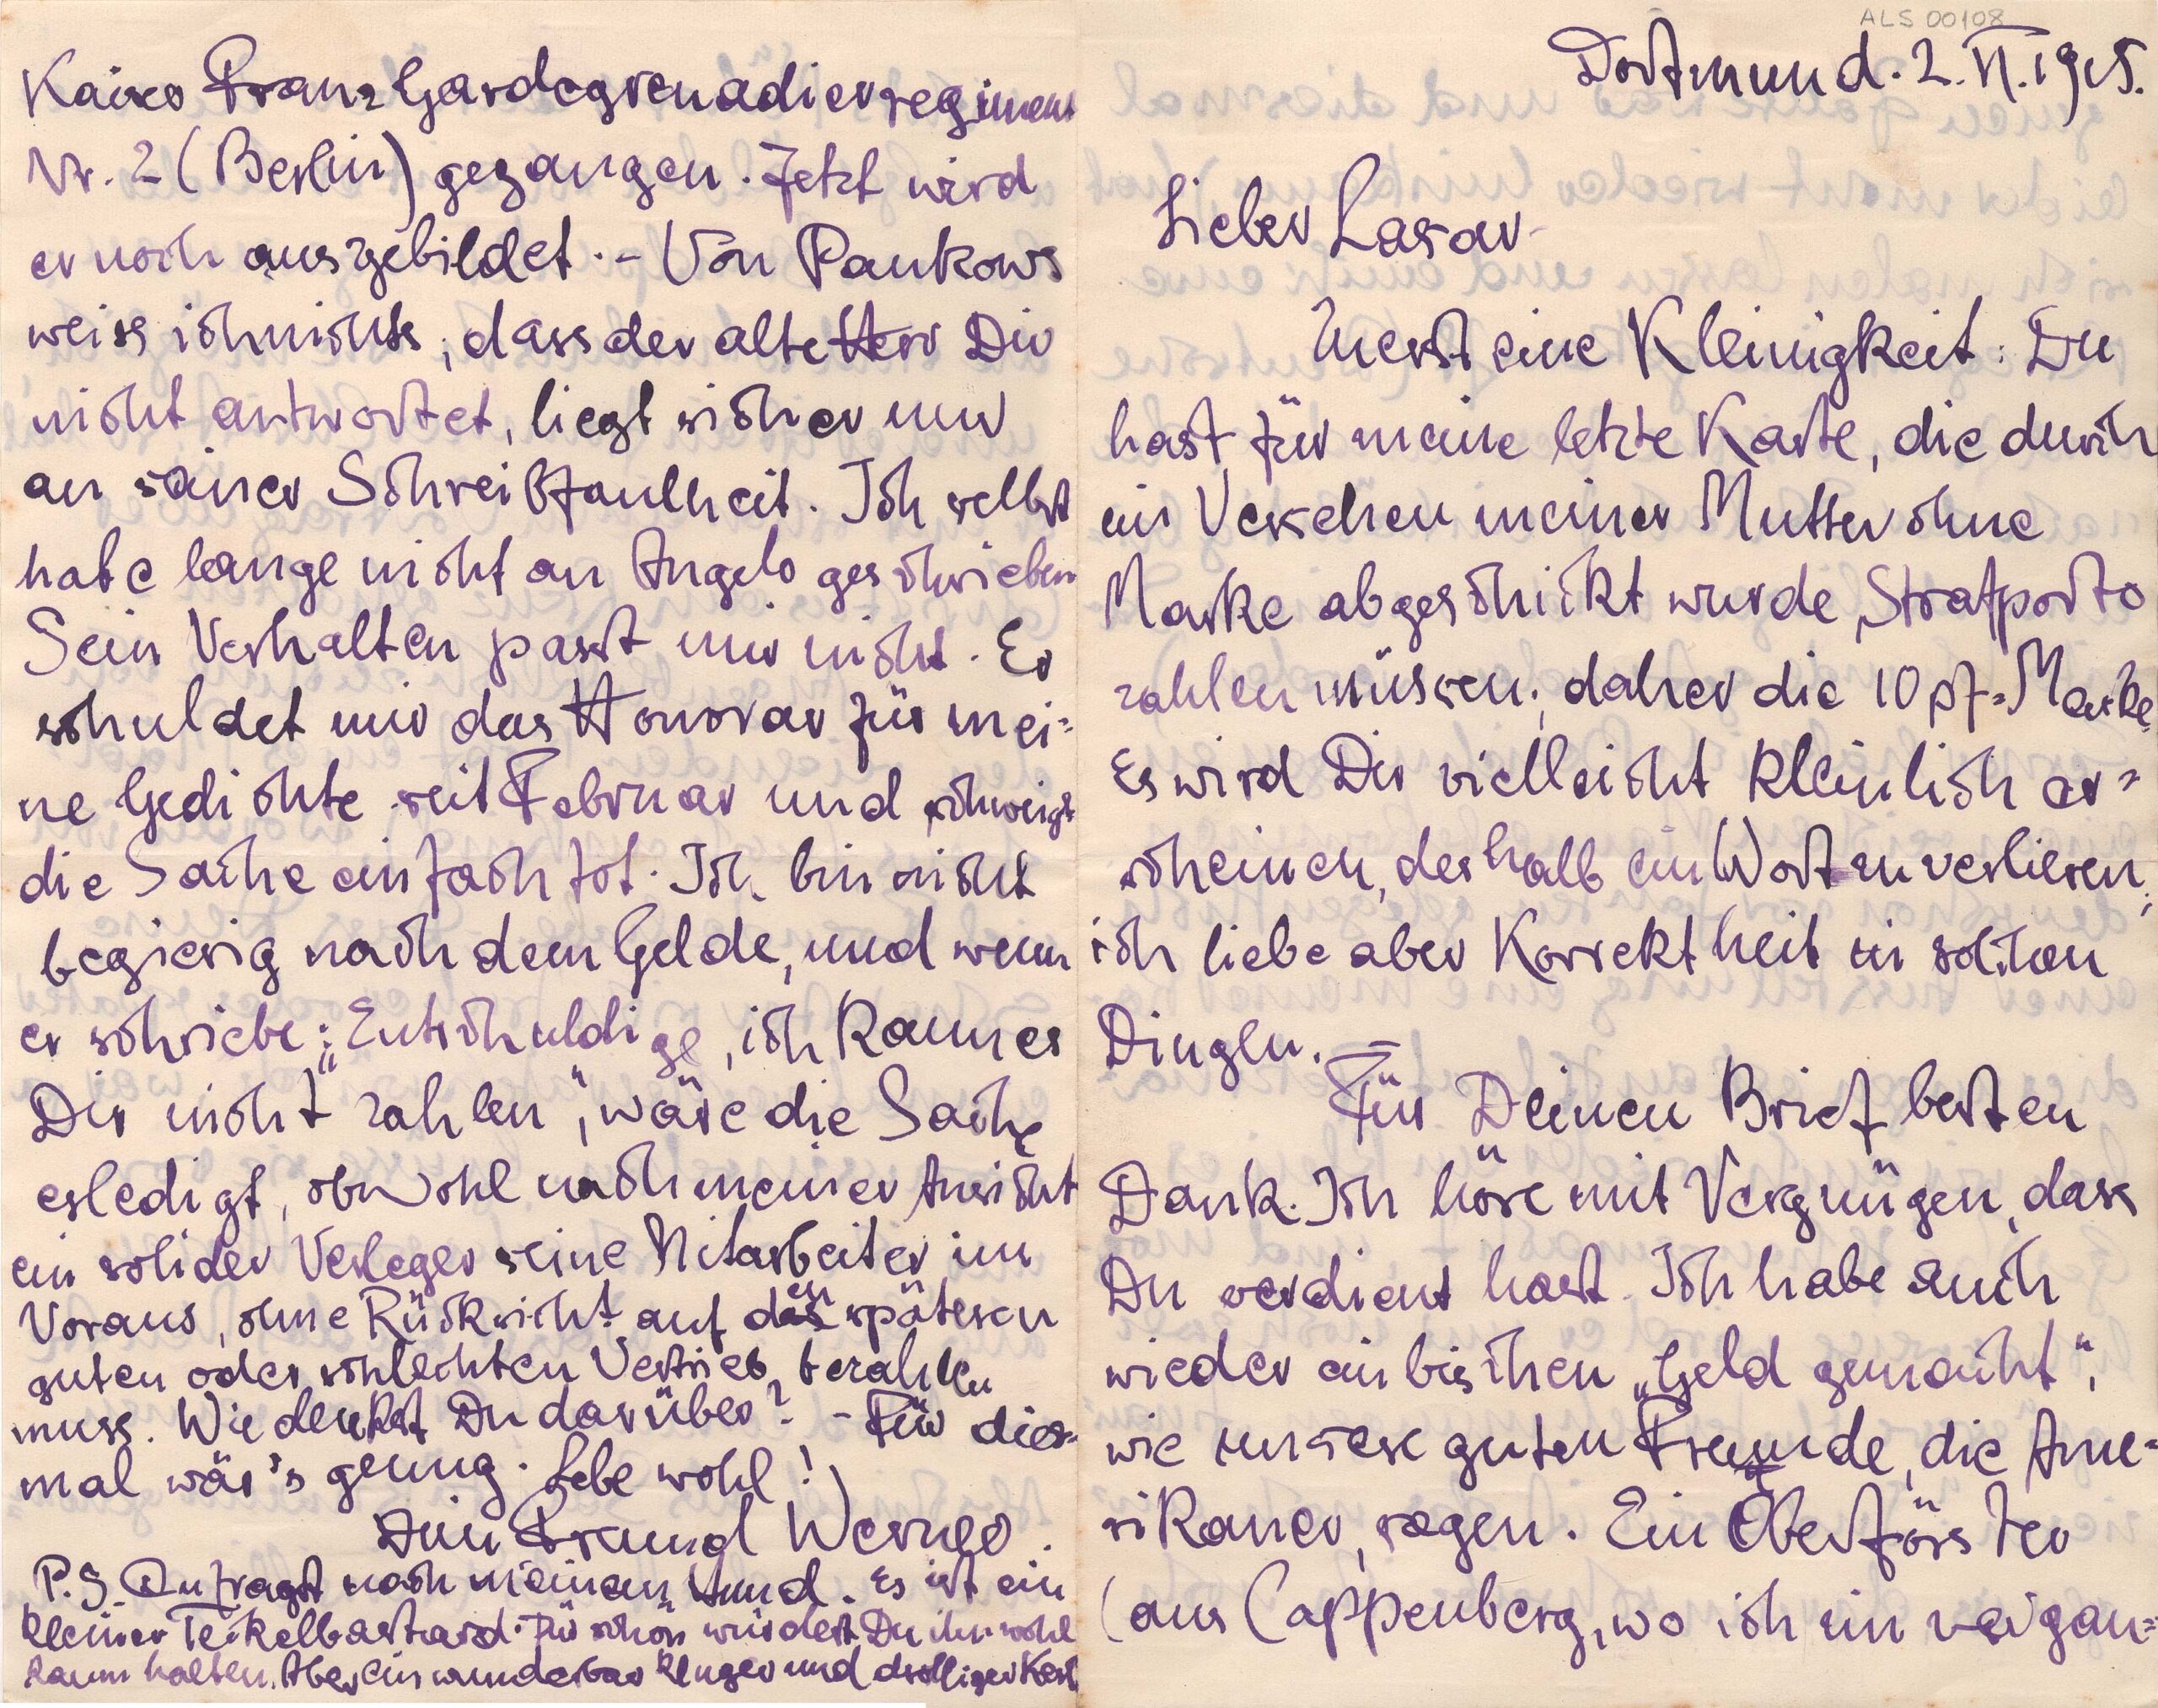 ALS 00108
Dortmund. 2. VI. 1915.
Lieber Lasar-
Zuerst eine Kleinigkeit: Du
hast für meine letzte Karte, die durch
ein Versehen meiner Mutter ohne
Marke abgeschickt wurde, Strafporto
zahlen müssen; daher die 10 pf=Marke.
Es wird Dir vielleicht kleinlich er=
scheinen, deshalb ein Wort zu verlieren;
ich liebe aber Korrektheit in solchen
Dingen. –
Für Deinen Brief besten
Dank. Ich höre mit Vergnügen, dass
Du verdient hast. Ich habe auch
wieder ein bischen „Geld gemacht“,
wie unsere guten Freunde, die Ame=
rikaner, sagen. Ein Oberförster
(aus Cappenberg, wo ich im vorigen=
Kaiser Franz Gardegrenadierregiment
Nr. 2 (Berlin) gegangen. Jetzt wird
er noch ausgebildet. – Von Pankows
weiss ich nichts; dass der alte Herr Dir
nicht antwortet, liegt sicher nur
an seiner Schreibfaulheit. Ich selbst
habe lange nicht an Angelo geschrieben
Sein Verhalten passt mir nicht. Er
schuldet mir das Honorar für mei=
ne Gedichte seit Februar und schweigt
die Sache einfach tot. Ich bin nicht
begierig nach dem Gelde, und wenn
er schriebe: „Entschuldige, ich kann es
Dir nicht zahlen“, wäre die Sache
erledigt, obwohl nach meiner Ansicht
ein solider Verleger seine Mitarbeiter im
Voraus, ohne Rücksicht auf den späteren
guten oder schlechten Vertrieb, bezahlen
muss. Wie denkst Du darüber? – Für dies=
mal wär's genug. Lebe wohl!
Dein Freund Werner.
P.S. Du fragst nach meinem Hund. Es ist ein
kleiner Teckelbastard. Für schön würdest Du ihn wohl
kaum halten. Aber ein wunderbar kluger und drolliger Kerl